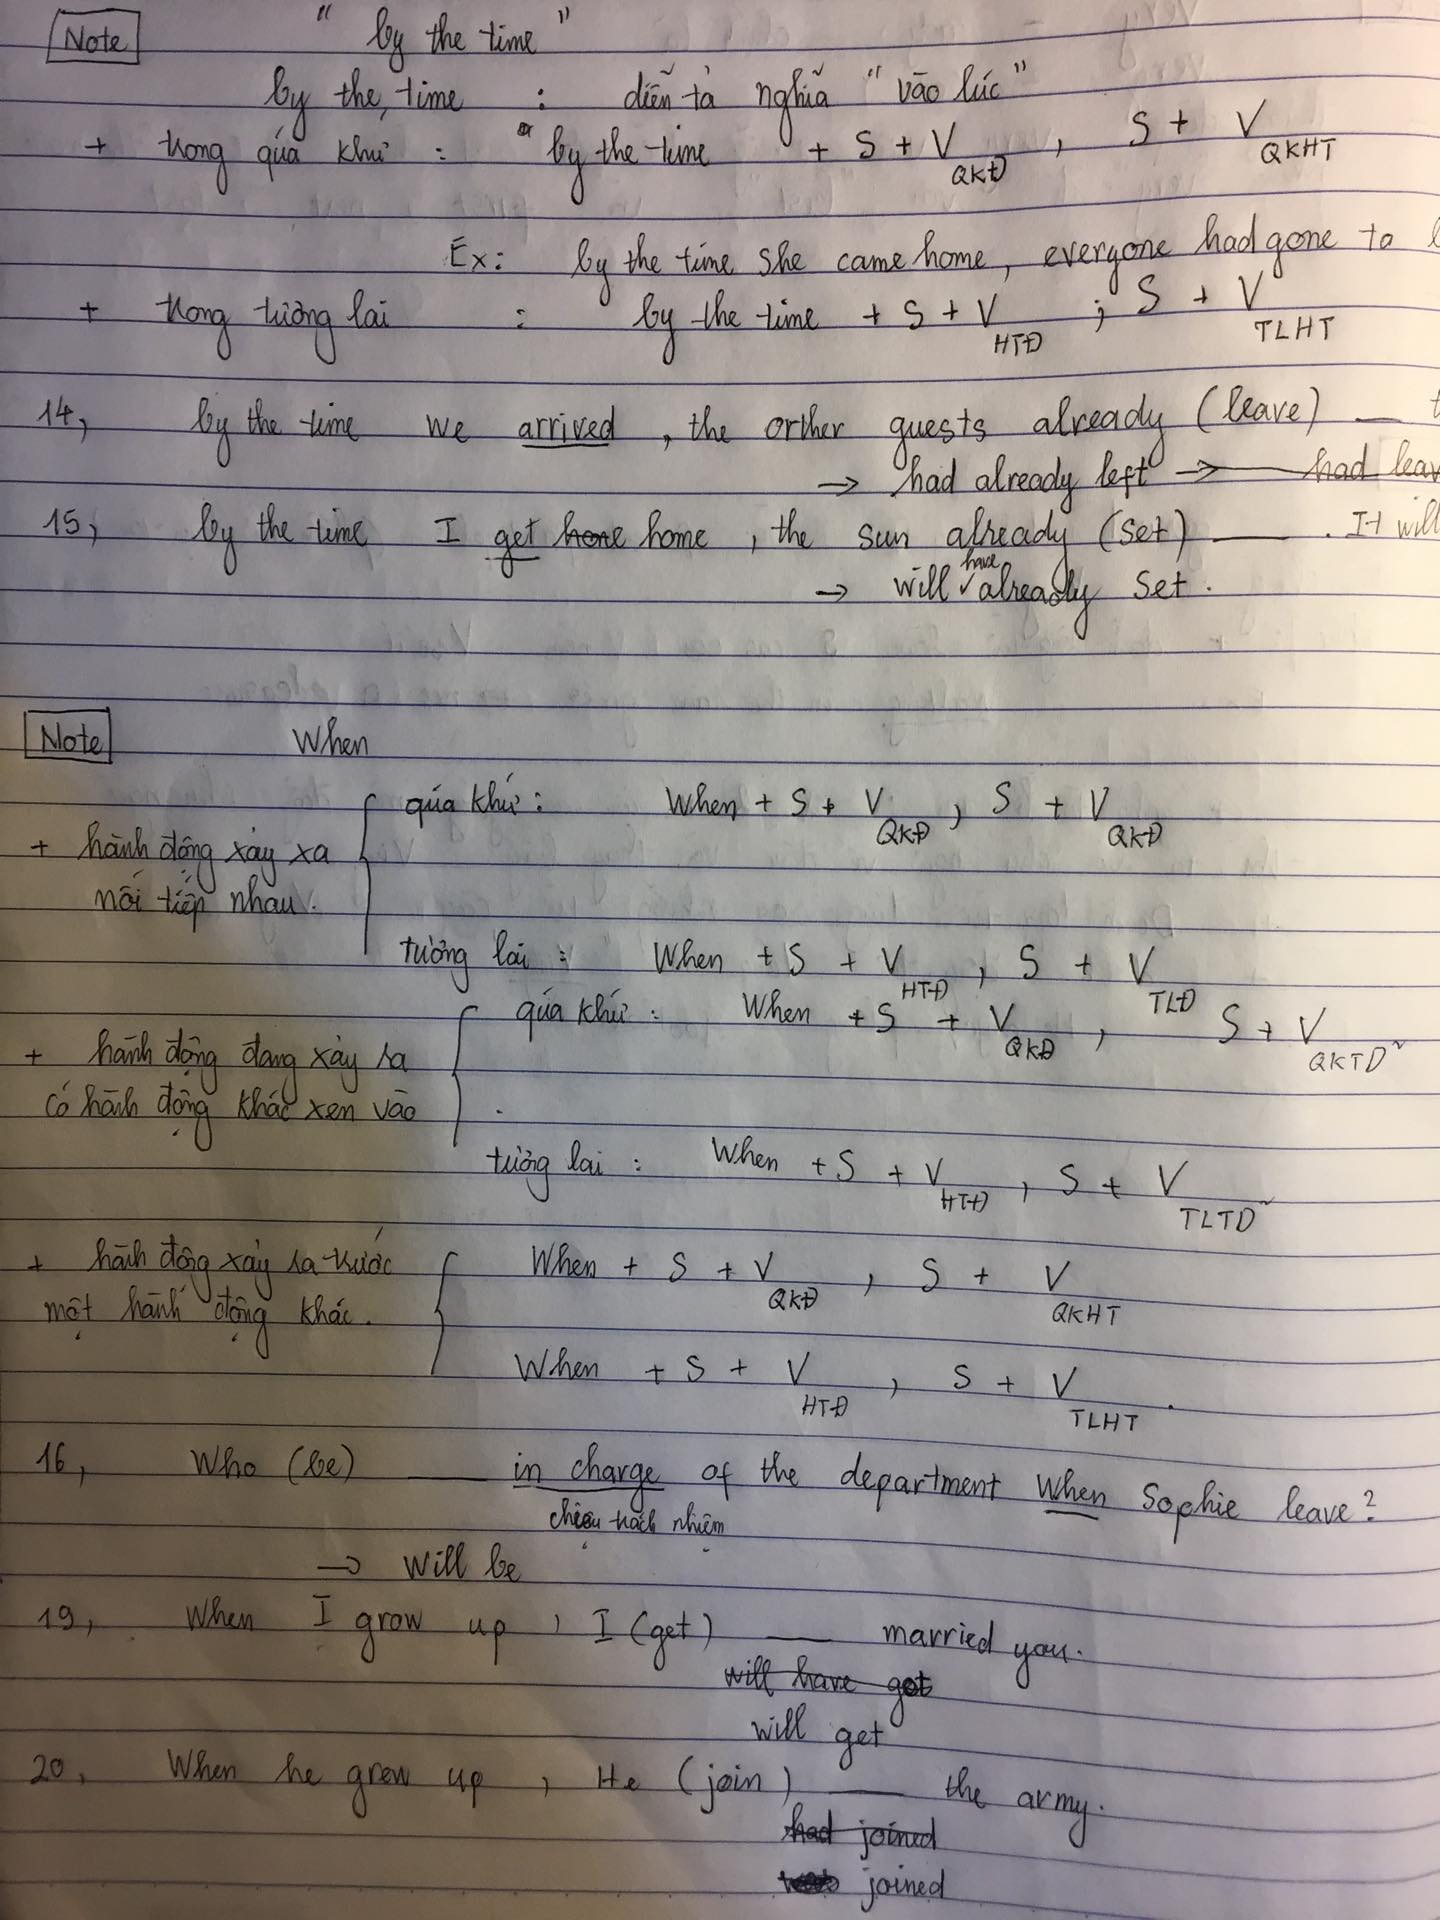 Note " by the time "
by the time : diễn tả nghĩa " vào lúc "
+ trong quá khứ : by the time + S + V QKĐ , S + V QKHT
Ex: by the time she came home, everyone had gone to
+ trong tương lai : by the time + S + V HTĐ , S + V TLHT
14, by the time we arrived , the orther guests already (leave) ___
→ had already left → had leav
15, by the time I get home home , the sun already (set) ___ . It will
→ will have already set .
Note When
+ hành động xảy xa nối tiếp nhau .
quá khứ : When + S + V QKĐ , S + V QKĐ
tương lai : When + S + V HTĐ , S + V TLĐ
+ hành động đang xảy ra có hành động khác xen vào
quá khứ : When + S + V QKĐ , S + V QKTD~
tương lai : When + S + V HTĐ , S + V TLTD~
+ hành động xảy ra trước một hành động khác .
When + S + V QKĐ , S + V QKHT
When + S + V HTĐ , S + V TLHT .
16, Who (be) ___ in charge of the department when Sophie leave?
chịu trách nhiệm
→ will be
19, When I grow up , I (get) ___ married you.
will have got
will get
20, When he grew up , He (join) ___ the army.
had joined
joined